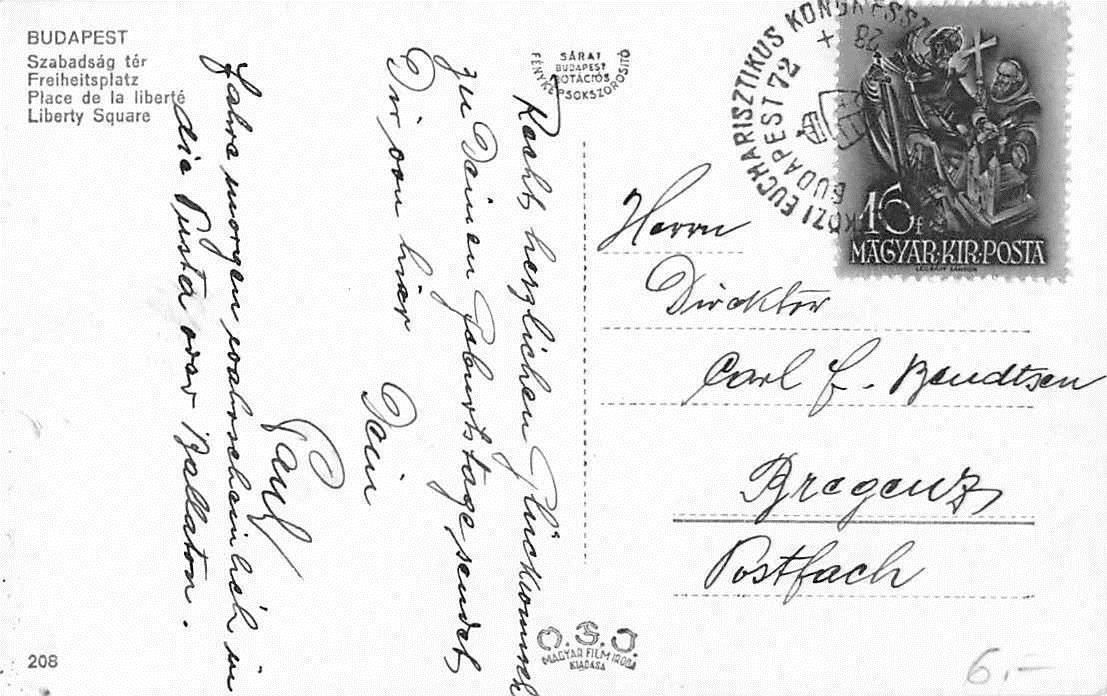 BUDAPEST
Szabadság tér
Freiheitsplatz
Place de la liberté
Liberty Square
SÁRAI
BUDAPEST
ROTÁCIÓS
FÉNYKÉPSOKSZOROSITÓ
KÖZI EUCHARISZTIKUS KONGRESSZ
BUDAPEST 72
28
BUDAPEST
16 f
MAGYAR·KIR·POSTA
LEGRÁDY SÁNDOR
Recht herzlichen Glückwunsch
zu Deinem Geburtstage sendet
Dir von hier
Dein
Paul
Fahre morgen wahrscheinlich in
die Pusta oder Ballaton.
Herrn
Direktor
Carl F. Bendtsen
Bregenz
Postfach
O.F.I.
MAGYAR FILM IRODA
KIADÁSA
208
6.–